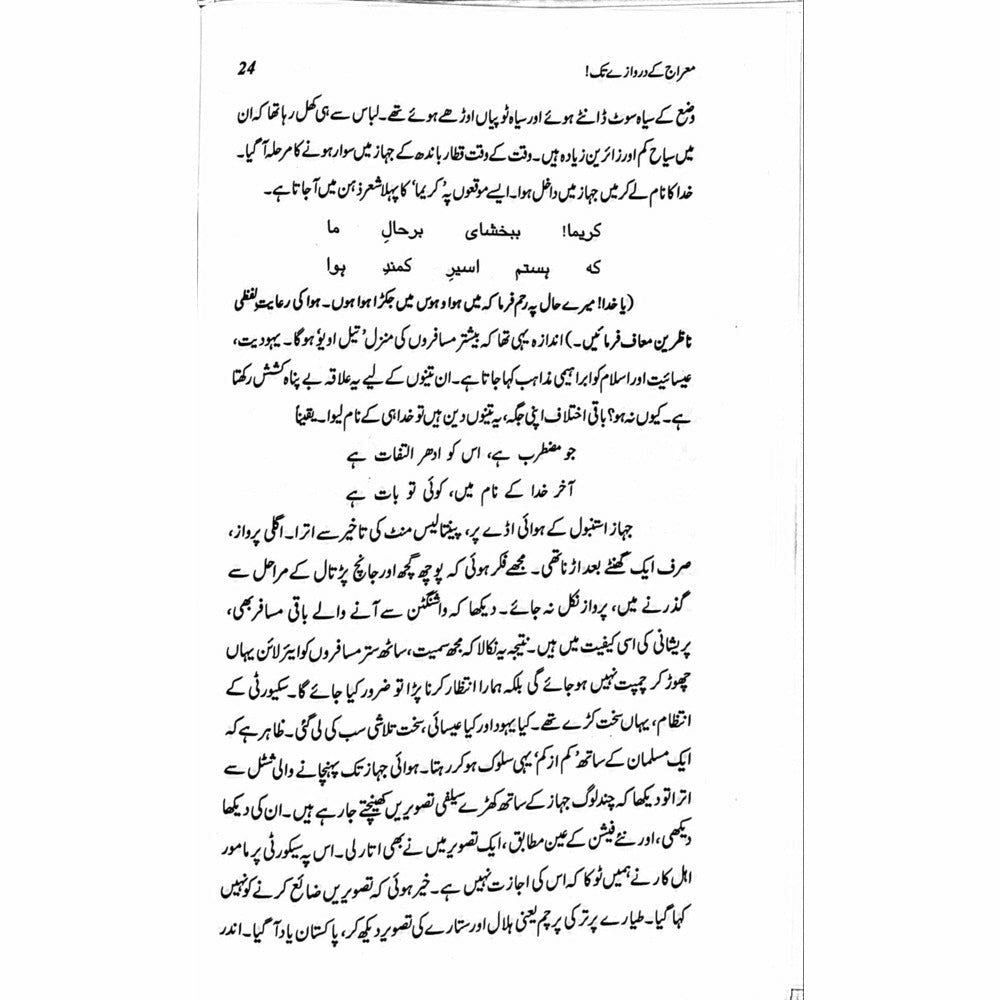 معراج کے دروازے تک!
24
وضع کے سیاہ سوٹ ڈانٹے ہوئے اور سیاہ ٹوپیاں اوڑھے ہوئے تھے۔ لباس سے ہی کھل رہا تھا کہ ان
میں سیاح کم اور زائرین زیادہ ہیں۔ وقت کے وقت قطار باندھ کے جہاز میں سوار ہونے کا مرحلہ آ گیا۔
خدا کا نام لے کر میں جہاز میں داخل ہوا۔ ایسے موقعوں پہ 'کریما' کا پہلا شعر ذہن میں آ جاتا ہے۔
کریما! ببخشای برحالِ ما
که ہستم اسیرِ کمندِ ہوا
(یا خدا! میرے حال پہ رحم فرما کہ میں ہوا و ہوس میں جکڑا ہوا ہوں۔ ہوا کی رعایتِ لفظی
ناظرین معاف فرمائیں۔) اندازہ یہی تھا کہ بیشتر مسافروں کی منزل 'تیل اویو' ہوگا۔ یہودیت،
عیسائیت اور اسلام کو ابراہیمی مذاہب کہا جاتا ہے۔ ان تینوں کے لیے یہ علاقہ بے پناہ کشش رکھتا
ہے۔ کیوں نہ ہو؟ باقی اختلاف اپنی جگہ، یہ تینوں دین ہیں تو خدا ہی کے نام لیوا۔ یقیناً
جو مضطرب ہے، اس کو ادھر التفات ہے
آخر خدا کے نام میں، کوئی تو بات ہے
جہاز استنبول کے ہوائی اڈے پر، پینتالیس منٹ کی تاخیر سے اترا۔ اگلی پرواز،
صرف ایک گھنٹے بعد اڑنا تھی۔ مجھے فکر ہوئی کہ پوچھ گچھ اور جانچ پڑتال کے مراحل سے
گذرنے میں، پرواز نکل نہ جائے۔ دیکھا کہ واشنگٹن سے آنے والے باقی مسافر بھی،
پریشانی کی اسی کیفیت میں ہیں۔ نتیجہ یہ نکالا کہ مجھ سمیت، ساٹھ ستر مسافروں کو ایئر لائن یہاں
چھوڑ کر چمپت نہیں ہو جائے گی بلکہ ہمارا انتظار کرنا پڑا تو ضرور کیا جائے گا۔ سکیورٹی کے
انتظام، یہاں سخت کڑے تھے۔ کیا یہود اور کیا عیسائی، سخت تلاشی سب کی لی گئی۔ ظاہر ہے کہ
ایک مسلمان کے ساتھ 'کم از کم' یہی سلوک ہو کر رہتا۔ ہوائی جہاز تک پہنچانے والی شٹل سے
اترا تو دیکھا کہ چند لوگ جہاز کے ساتھ کھڑے سیلفی تصویریں کھینچتے جا رہے ہیں۔ ان کی دیکھا
دیکھی، اور نئے فیشن کے عین مطابق، ایک تصویر میں نے بھی اتار لی۔ اس پہ سیکورٹی پر مامور
اہل کار نے ہمیں ٹوکا کہ اس کی اجازت نہیں ہے۔ خیر ہوئی کہ تصویریں ضائع کرنے کو نہیں
کہا گیا۔ طیارے پر ترکی پرچم یعنی ہلال اور ستارے کی تصویر دیکھ کر، پاکستان یاد آ گیا۔ اندر